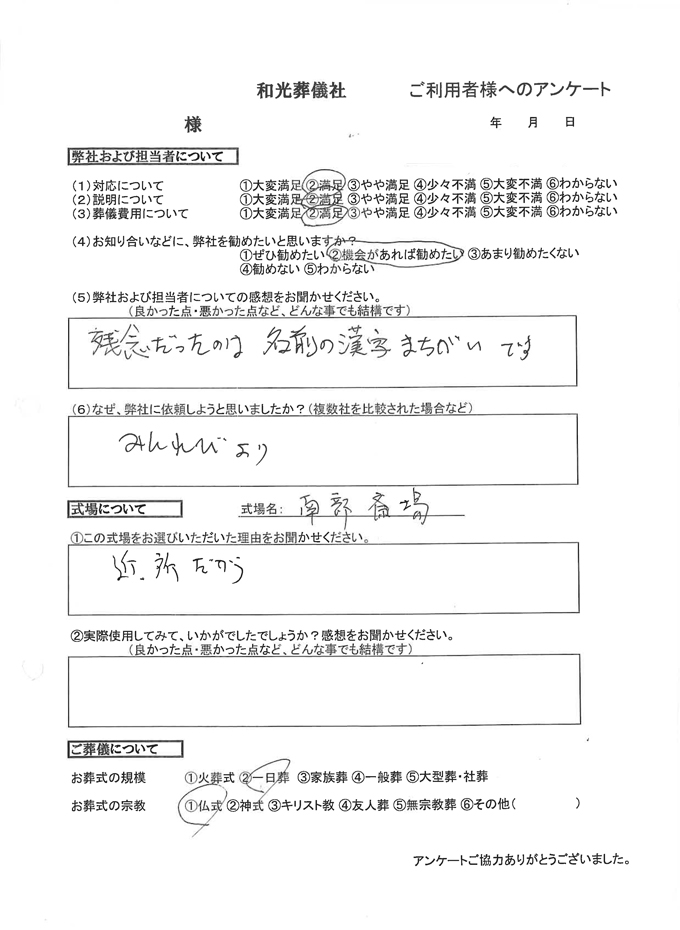 和光葬儀社 ご利用者様へのアンケート
様 年 月 日
弊社および担当者について
(1)対応について ①大変満足 ②満足 ③やや満足 ④少々不満 ⑤大変不満 ⑥わからない
(2)説明について ①大変満足 ②満足 ③やや満足 ④少々不満 ⑤大変不満 ⑥わからない
(3)葬儀費用について ①大変満足 ②満足 ③やや満足 ④少々不満 ⑤大変不満 ⑥わからない
(4)お知り合いなどに、弊社を勧めたいと思いますか?
①ぜひ勧めたい ②機会があれば勧めたい ③あまり勧めたくない
④勧めない ⑤わからない
(5)弊社および担当者についての感想をお聞かせください。
(良かった点・悪かった点など、どんな事でも結構です)
残念だったのは 名前の漢字まちがい です
(6)なぜ、弊社に依頼しようと思いましたか?(複数社を比較された場合など)
みんれびより
式場について 式場名: 南部斎場
①この式場をお選びいただいた理由をお聞かせください。
近所だから
②実際使用してみて、いかがでしたでしょうか?感想をお聞かせください。
(良かった点・悪かった点など、どんな事でも結構です)
ご葬儀について
お葬式の規模 ①火葬式 ②一日葬 ③家族葬 ④一般葬 ⑤大型葬・社葬
お葬式の宗教 ①仏式 ②神式 ③キリスト教 ④友人葬 ⑤無宗教葬 ⑥その他( )
アンケートご協力ありがとうございました。